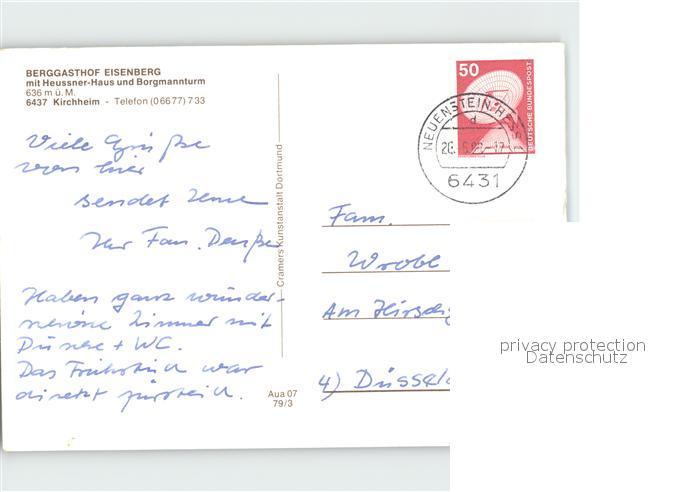 BERGGASTHOF EISENBERG
mit Heussner-Haus und Borgmannturm
636 m ü. M.
6437 Kirchheim - Telefon (0 66 77) 7 33
Viele Grüße
von hier
sendet Ihnen
Ihr Fam.
Haben ganz wunder-
schöne Zimmer mit
Dusche + WC.
Das Frühstück war
direkt fürstlich.
Cramers Kunstanstalt Dortmund
Aua 07
79/3
50
DEUTSCHE BUNDESPOST
NEUENSTEIN, HESS
d
6431
Fam.
Wrobl
Am Hirsch
4) Düssel
privacy protection
Datenschutz